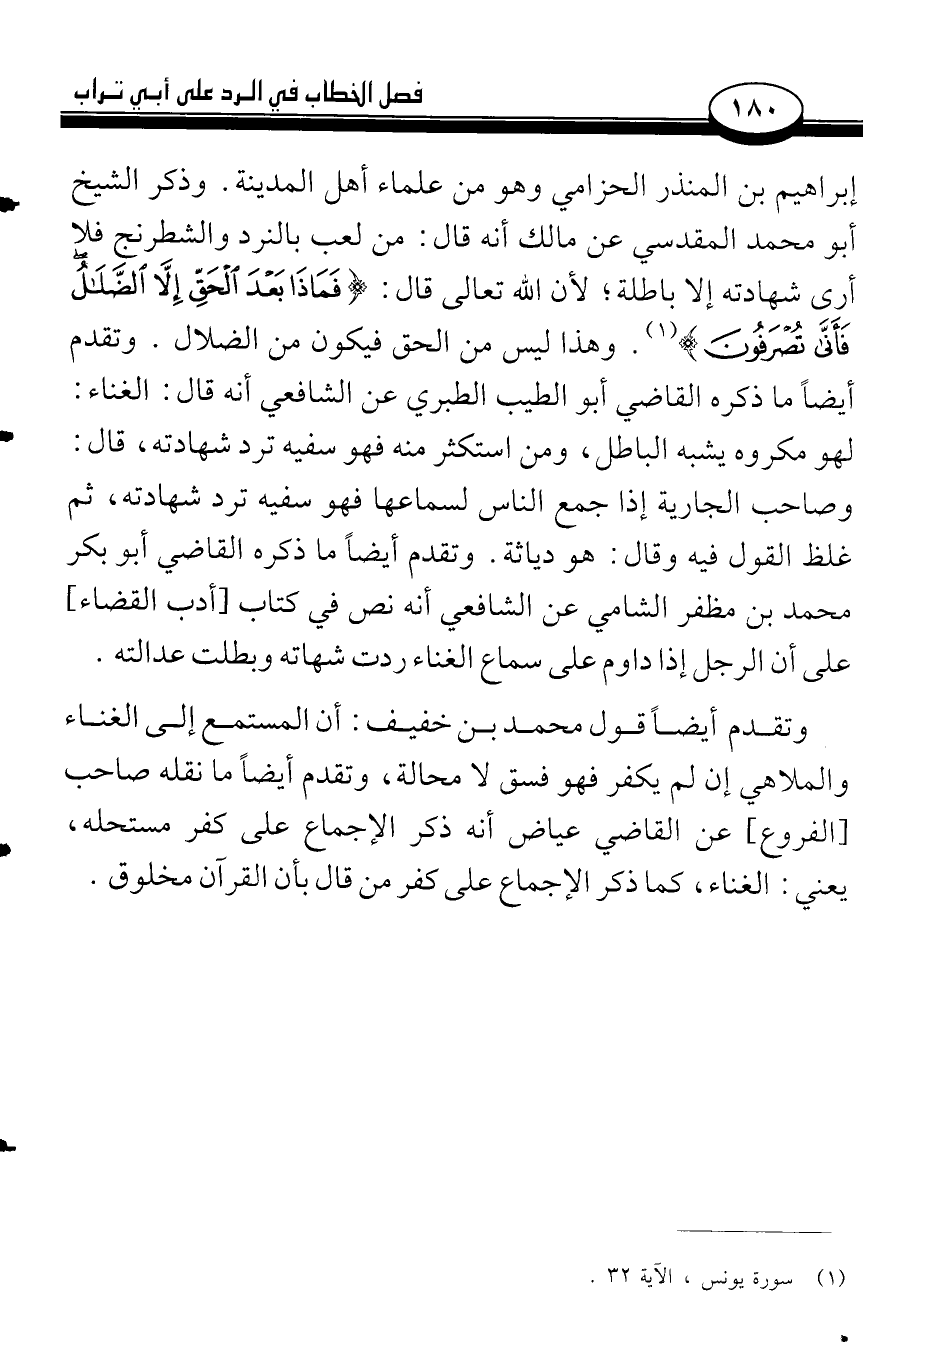 فصل الخطاب في الرد على أبي تراب
١٨٠
إبراهيم بن المنذر الحزامي وهو من علماء أهل المدينة. وذكر الشيخ
أبو محمد المقدسي عن مالك أنه قال: من لعب بالنرد والشطرنج فلا
أرى شهادته إلا باطلة؛ لأن الله تعالى قال: ﴿فَمَاذَا بَعْدَ ٱلْحَقِّ إِلَّا ٱلضَّلَـٰلُ ۖ
فَأَنَّىٰ تُصْرَفُونَ﴾(١). وهذا ليس من الحق فيكون من الضلال . وتقدم
أيضاً ما ذكره القاضي أبو الطيب الطبري عن الشافعي أنه قال: الغناء:
لهو مكروه يشبه الباطل، ومن استكثر منه فهو سفيه ترد شهادته، قال:
وصاحب الجارية إذا جمع الناس لسماعها فهو سفيه ترد شهادته، ثم
غلظ القول فيه وقال: هو دياثة. وتقدم أيضاً ما ذكره القاضي أبو بكر
محمد بن مظفر الشامي عن الشافعي أنه نص في كتاب [أدب القضاء]
على أن الرجل إذا داوم على سماع الغناء ردت شهاته وبطلت عدالته .
وتقدم أيضاً قول محمد بن خفيف: أن المستمع إلى الغناء
والملاهي إن لم يكفر فهو فسق لا محالة، وتقدم أيضاً ما نقله صاحب
[الفروع] عن القاضي عياض أنه ذكر الإجماع على كفر مستحله،
يعني: الغناء، كما ذكر الإجماع على كفر من قال بأن القرآن مخلوق .
(١) سورة يونس ، الآية ٣٢ .